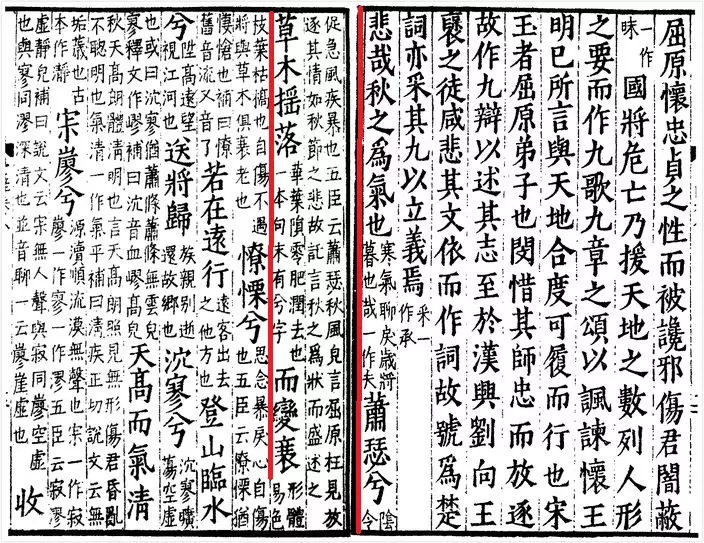 屈原懷忠貞之性而被讒邪傷君闇蔽
一作昧國將危亡乃援天地之數列人形
之要而作九歌九章之頌以諷諫懷王
明已所言與天地合度可履而行也宋
玉者屈原弟子也閔惜其師忠而放逐
故作九辯以述其志至於漢興劉向王
襃之徒咸悲其文依而作詞故號爲楚
詞亦采其九以立義焉采一作承
悲哉秋之爲氣也寒氣聊戾歲將暮也哉一作夫蕭瑟兮陰令
促急風疾暴也五臣云蕭瑟秋風皃言屈原枉見放
逐其情如秋節之悲故託言秋之爲狀而盛述之
草木搖落華葉隕零肥潤去也一本句末有兮字而變衰形體易色
枝葉枯槁也自傷不遇將與草木俱衰老也憭慄兮思念暴戾心自傷也五臣云憭慄猶
悽愴也補曰憭舊音流又音了若在遠行遠客出去之他方也登山臨水
兮陞高遠望視江河也送將歸族親別逝還故鄉也泬寥兮泬寥曠蕩空虛
也或曰泬寥猶蕭條蕭條無雲皃寥釋文作嵺補曰泬音血嵺高皃天高而氣清
秋天高朗體清明也言天高朗照見無形傷君昏亂
不聰明也氣清一作氣平補曰清疾正切說文云無
垢薉也古本作瀞宋廖兮源瀆順流漠無聲也宋一作寂廖一作寥一作漻五臣云寂漻
虛靜皃補曰說文云宋無人聲與寂同廖空虛
也與寥同漻深清也並音聊一云廖崖虛也收